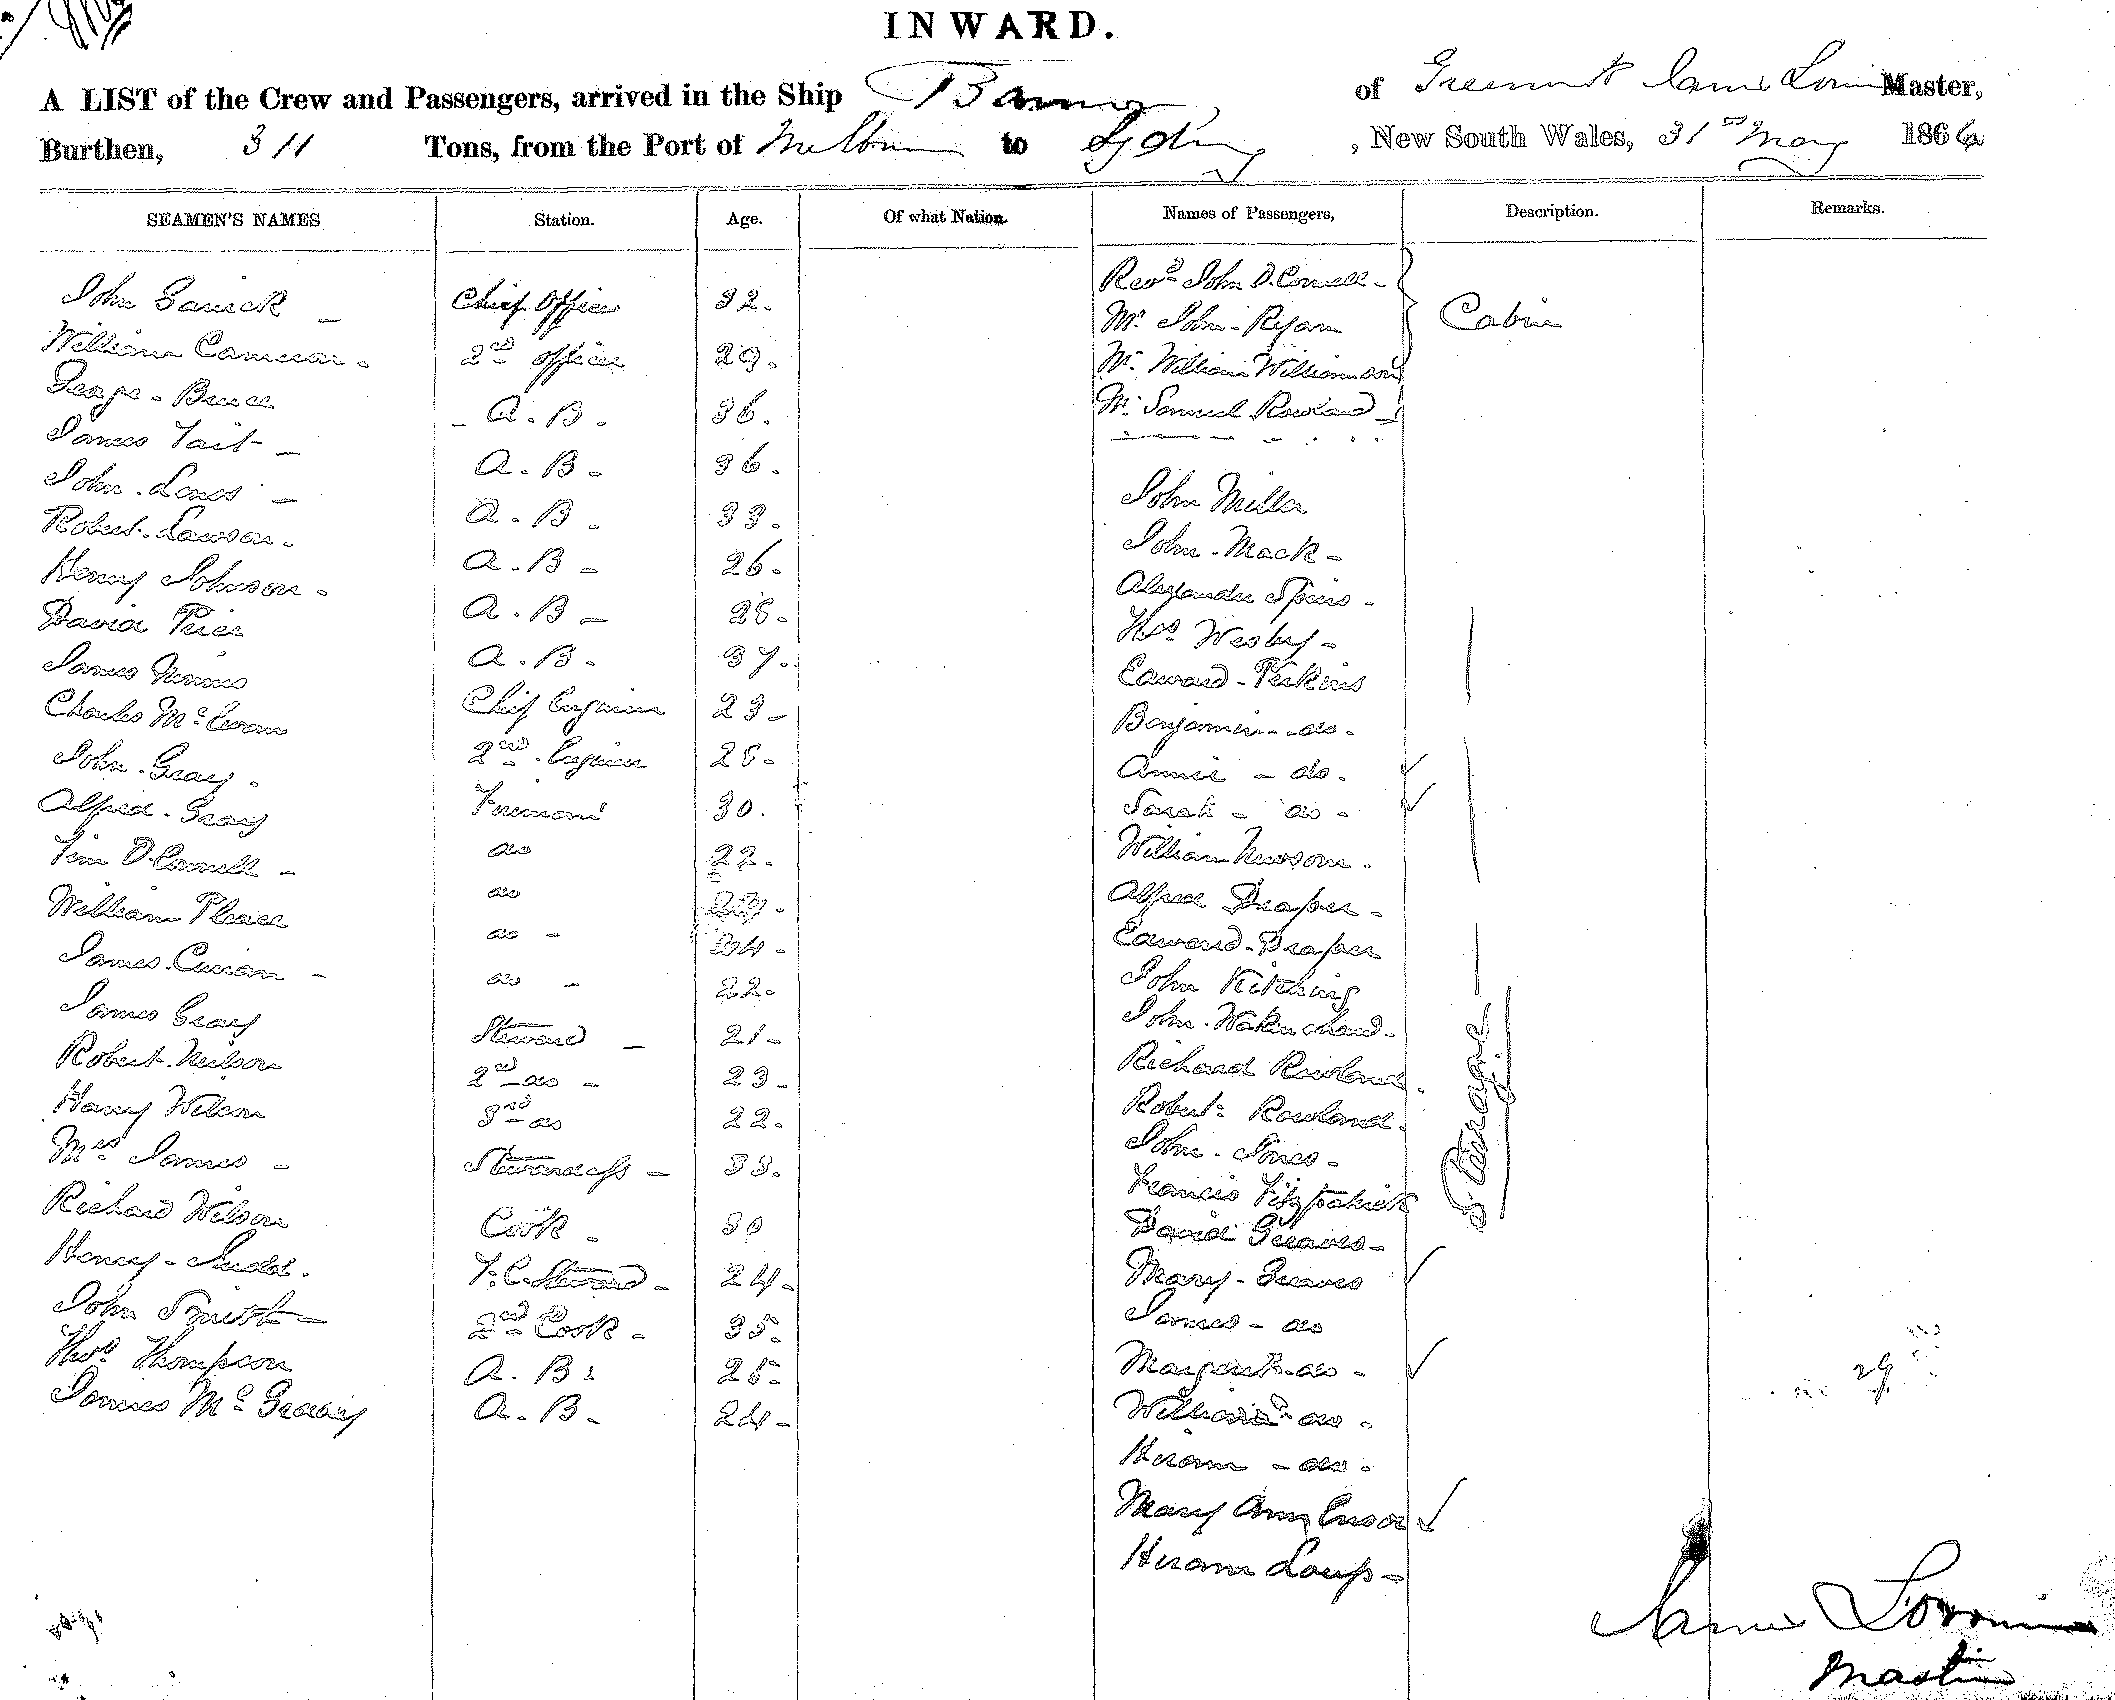 INWARD.
A LIST of the Crew and Passengers, arrived in the Ship of James Master,
Burthen, 311 Tons, from the Port of Melbourne to Sydney, New South Wales, 31st May 1866
SEAMEN'S NAMES Station. Age. Of what Nation. Names of Passengers, Description. Remarks.
John Chief Officer 32.
William Cameron. 2nd Officer 29.
George - Bruce - A. B. 36.
James Tait - A. B - 36.
John. Jones - A. B. 33.
Robert. Lawson. A. B - 26.
Henry Johnson. A. B - 28.
David Price A. B. 37.
James Chief Engineer 23 -
Charles McEwan 2nd. Engineer 28.
John. Gray. Fireman 30.
Alfred. Gray do 22.
Tim O.Connell - do
William Place do - 24 -
James. Curran - do - 22.
James Gray Steward - 21 -
Robert. Neilson 2nd do - 23 -
Harry Wilson 3rd do 22.
Mrs James - Stewardess - 33.
Richard Wilson Cook - 30
Henry - Judd. F. C. Steward - 24 -
John Smith 2nd Cook - 35.
Thos Thompson A. B. 25.
James Mc A. B - 24 -
Revd John O.Connell - Cabin
Mr John - Ryan
Mr William Williamson
Mr Samuel Rowland -
John Miller
John - Mack -
Alexander Spiers -
Wesby -
Edward - Perkins
Benjamin - do -
Annie - do.
Sarah - do -
William Newson.
Alfred Draper -
Edward - Draper
John Kitching
John.
Richard Rowland.
Robert Rowland.
John - Jones -
Francis Fitzpatrick
David Greaves -
Mary - Greaves
James - do
Margaret - do -
William - do -
Hiram - do -
Mary Ann Ensor
Hiram
Steerage
29
James
Master